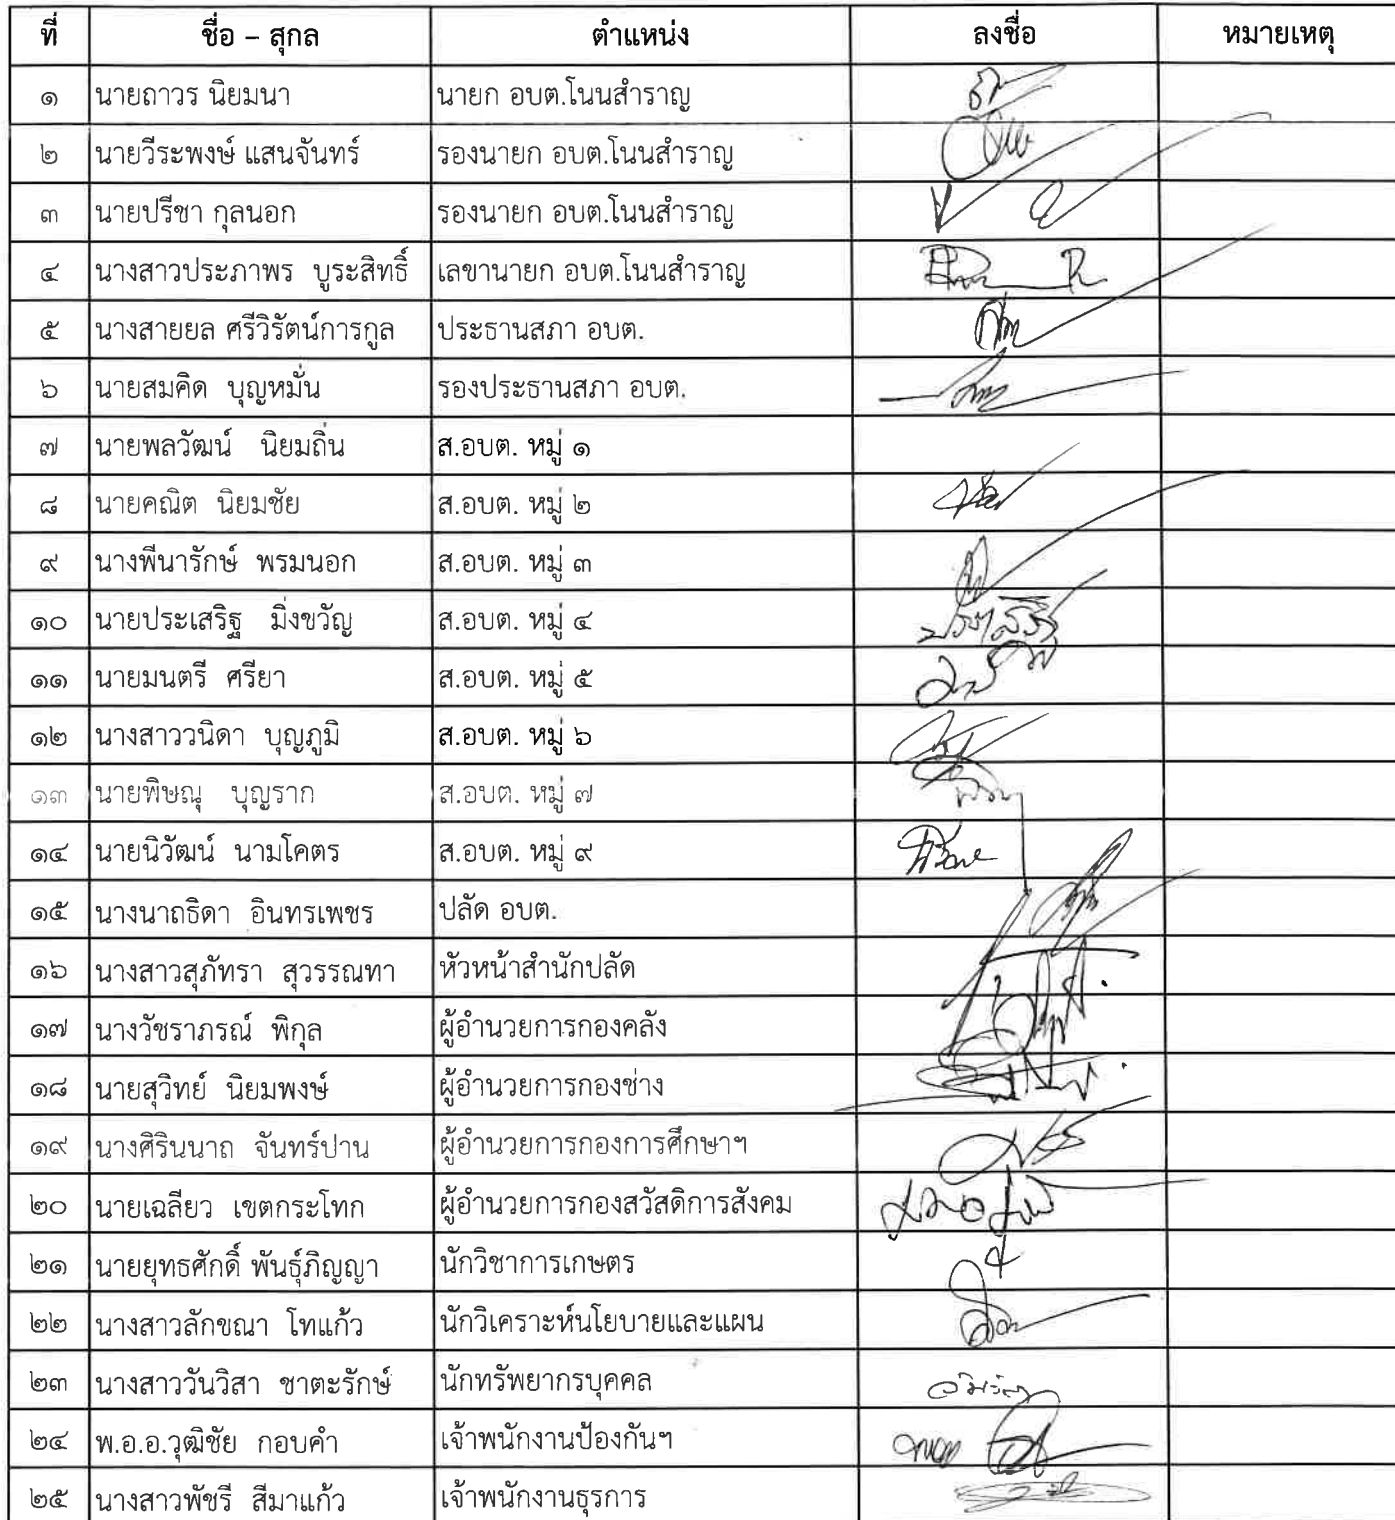 ที่ ชื่อ – สุกล ตำแหน่ง ลงชื่อ หมายเหตุ
๑ นายถาวร นิยมนา นายก อบต.โนนสำราญ
๒ นายวีระพงษ์ แสนจันทร์ รองนายก อบต.โนนสำราญ
๓ นายปรีชา กุลนอก รองนายก อบต.โนนสำราญ
๔ นางสาวประภาพร บูระสิทธิ์ เลขานายก อบต.โนนสำราญ
๕ นางสายยล ศรีวิรัตน์การกูล ประธานสภา อบต.
๖ นายสมคิด บุญหมั่น รองประธานสภา อบต.
๗ นายพลวัฒน์ นิยมถิ่น ส.อบต. หมู่ ๑
๘ นายคณิต นิยมชัย ส.อบต. หมู่ ๒
๙ นางพีนารักษ์ พรมนอก ส.อบต. หมู่ ๓
๑๐ นายประเสริฐ มิ่งขวัญ ส.อบต. หมู่ ๔
๑๑ นายมนตรี ศรียา ส.อบต. หมู่ ๕
๑๒ นางสาววนิดา บุญภูมิ ส.อบต. หมู่ ๖
๑๓ นายพิษณุ บุญราก ส.อบต. หมู่ ๗
๑๔ นายนิวัฒน์ นามโคตร ส.อบต. หมู่ ๙
๑๕ นางนาถธิดา อินทรเพชร ปลัด อบต.
๑๖ นางสาวสุภัทรา สุวรรณทา หัวหน้าสำนักปลัด
๑๗ นางวัชราภรณ์ พิกุล ผู้อำนวยการกองคลัง
๑๘ นายสุวิทย์ นิยมพงษ์ ผู้อำนวยการกองช่าง
๑๙ นางศิรินนาถ จันทร์ปาน ผู้อำนวยการกองการศึกษาฯ
๒๐ นายเฉลียว เขตกระโทก ผู้อำนวยการกองสวัสดิการสังคม
๒๑ นายยุทธศักดิ์ พันธุ์ภิญญา นักวิชาการเกษตร
๒๒ นางสาวลักขณา โทแก้ว นักวิเคราะห์นโยบายและแผน
๒๓ นางสาววันวิสา ชาตะรักษ์ นักทรัพยากรบุคคล
๒๔ พ.อ.อ.วุฒิชัย กอบคำ เจ้าพนักงานป้องกันฯ
๒๕ นางสาวพัชรี สีมาแก้ว เจ้าพนักงานธุรการ